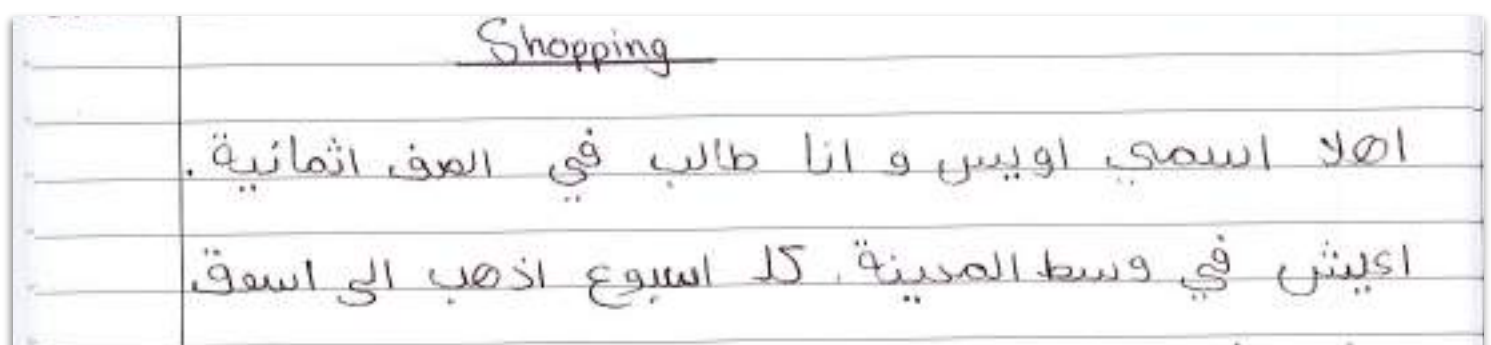 Shopping
اهلا اسمي اويس و انا طالب في الصف اثمانية.
اعيش في وسط المدينة. كل اسبوع اذهب الى اسوق